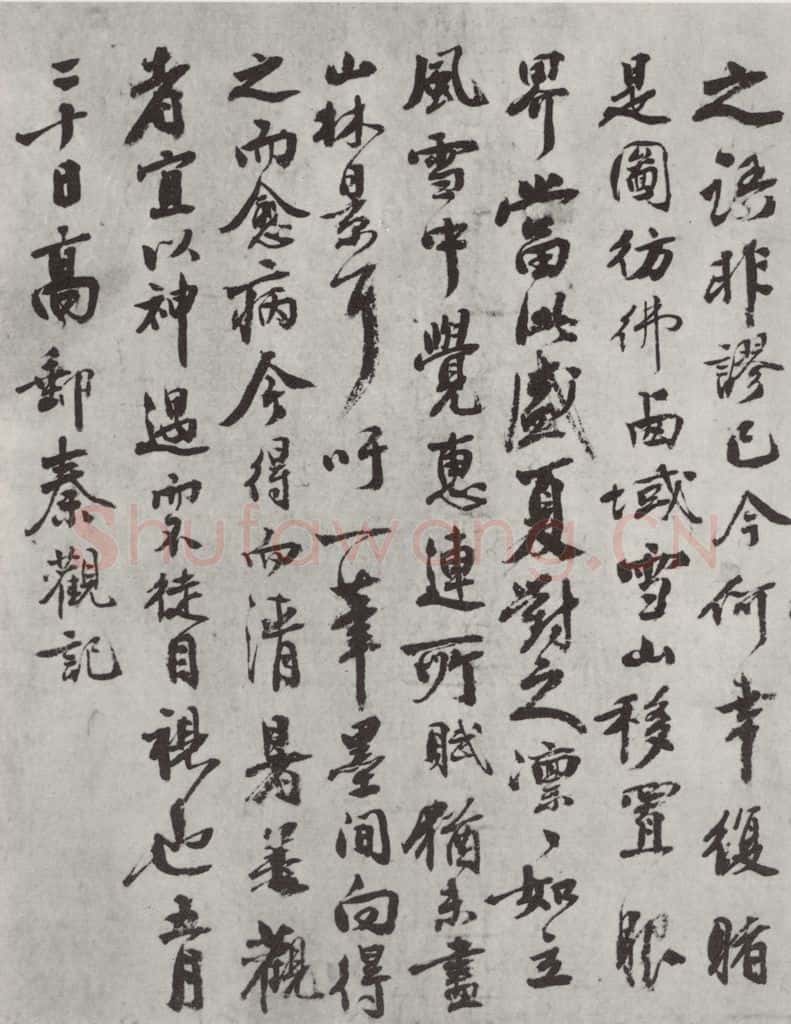 之語非謬已今何幸復睹
是圖彷彿西域雪山移置眼
界當此盛夏對之凛〻如立
風雪中覺惠連所賦猶未盡
山林景耳吁一筆墨間向得
之而愈病今得而清暑善觀
者宜以神遇而不徒目視也五月
二十日高郵秦觀記
Shufawang.CN